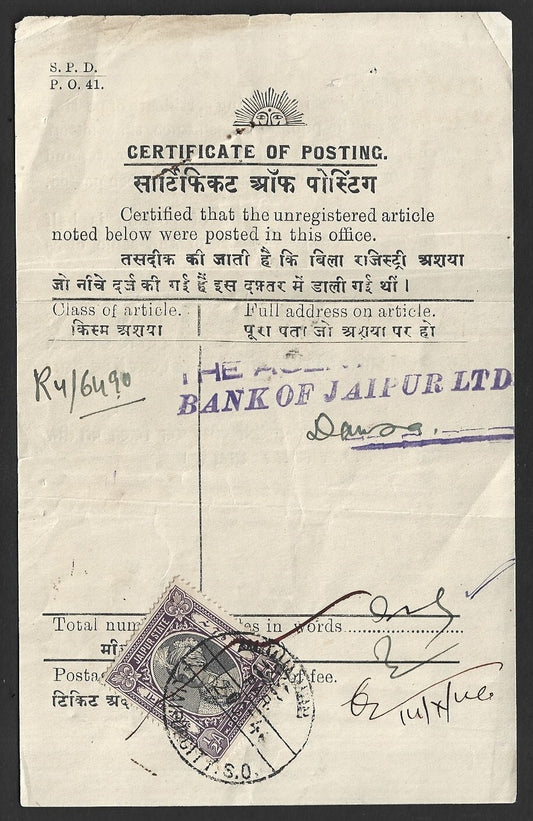 S. P. D.
P. O. 41.
CERTIFICATE OF POSTING.
सार्टिफिकट ऑफ पोस्टिंग
Certified that the unregistered article
noted below were posted in this office.
तसदीक की जाती है कि बिला रजिस्ट्री अशया
जो नीचे दर्ज की गई हैं इस दफ़्तर में डाली गई थीं।
Class of article. Full address on article.
किस्म अशया पूरा पता जो अशया पर हो
THE AGENT
R4/6490 BANK OF JAIPUR LTD
Dausa.
Total in words
Posta of fee.
टिकिट
JAIPUR STATE
CITY. S.O.